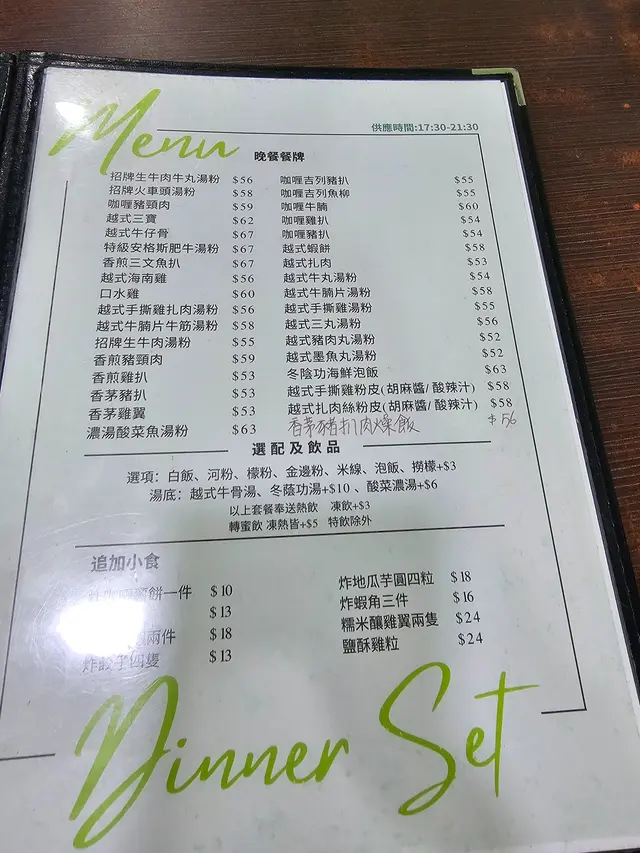 Menu
供應時間:17:30-21:30
晚餐餐牌
招牌生牛肉牛丸湯粉 $56
招牌火車頭湯粉 $58
咖喱豬頸肉 $59
越式三寶 $62
越式牛仔骨 $67
特級安格斯肥牛湯粉 $67
香煎三文魚扒 $67
越式海南雞 $56
口水雞 $60
越式手撕雞扎肉湯粉 $56
越式牛腩片牛筋湯粉 $58
招牌生牛肉湯粉 $55
香煎豬頸肉 $59
香煎雞扒 $53
香茅豬扒 $53
香茅雞翼 $53
濃湯酸菜魚湯粉 $63
咖喱吉列豬扒 $55
咖喱吉列魚柳 $55
咖喱牛腩 $60
咖喱雞扒 $54
咖喱豬扒 $54
越式蝦餅 $58
越式扎肉 $53
越式牛丸湯粉 $54
越式牛腩片湯粉 $58
越式手撕雞湯粉 $55
越式三丸湯粉 $56
越式豬肉丸湯粉 $52
越式墨魚丸湯粉 $52
冬陰功海鮮泡飯 $63
越式手撕雞粉皮(胡麻醬/酸辣汁) $58
越式扎肉絲粉皮(胡麻醬/酸辣汁) $58
香茅豬扒肉燥飯 $56
選配及飲品
選項：白飯、河粉、檬粉、金邊粉、米線、泡飯、撈檬+$3
湯底：越式牛骨湯、冬蔭功湯+$10、酸菜濃湯+$6
以上套餐奉送熱飲 凍飲+$3
轉蜜飲 凍熱皆+$5 特飲除外
追加小食
餅一件 $10
$13
兩件 $18
炸餃子四隻 $13
炸地瓜芋圓四粒 $18
炸蝦角三件 $16
糯米釀雞翼兩隻 $24
鹽酥雞粒 $24
Dinner Set